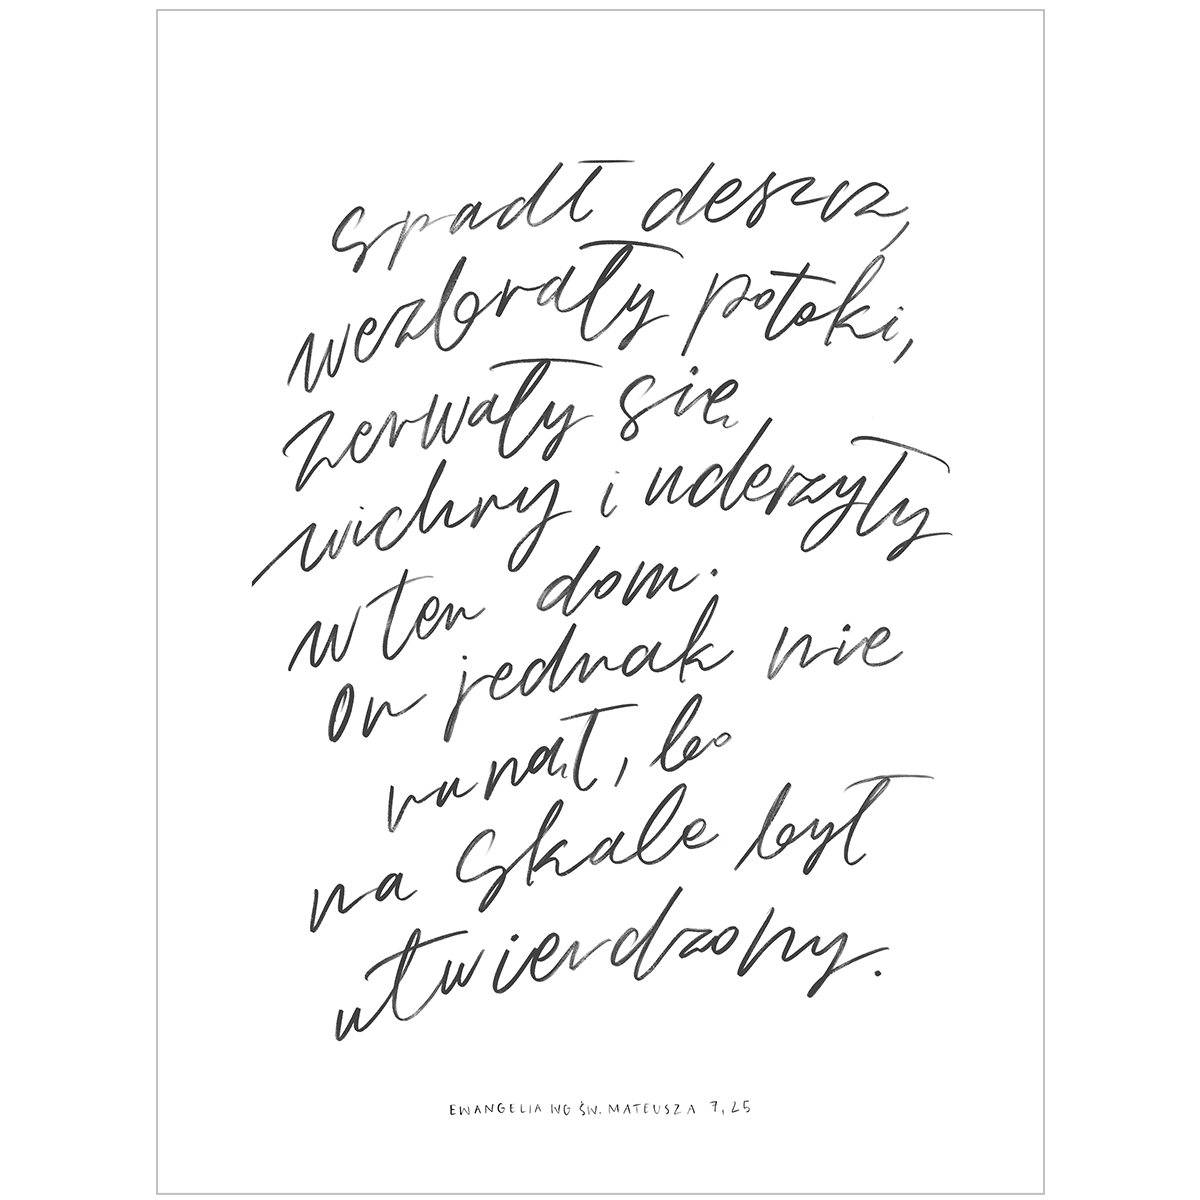 Spadł deszcz,
wezbrały potoki,
zerwały się
wichry i uderzyły
w ten dom.
On jednak nie
runął, bo
na skale był
utwierdzony.
EWANGELIA WG ŚW. MATEUSZA 7,25